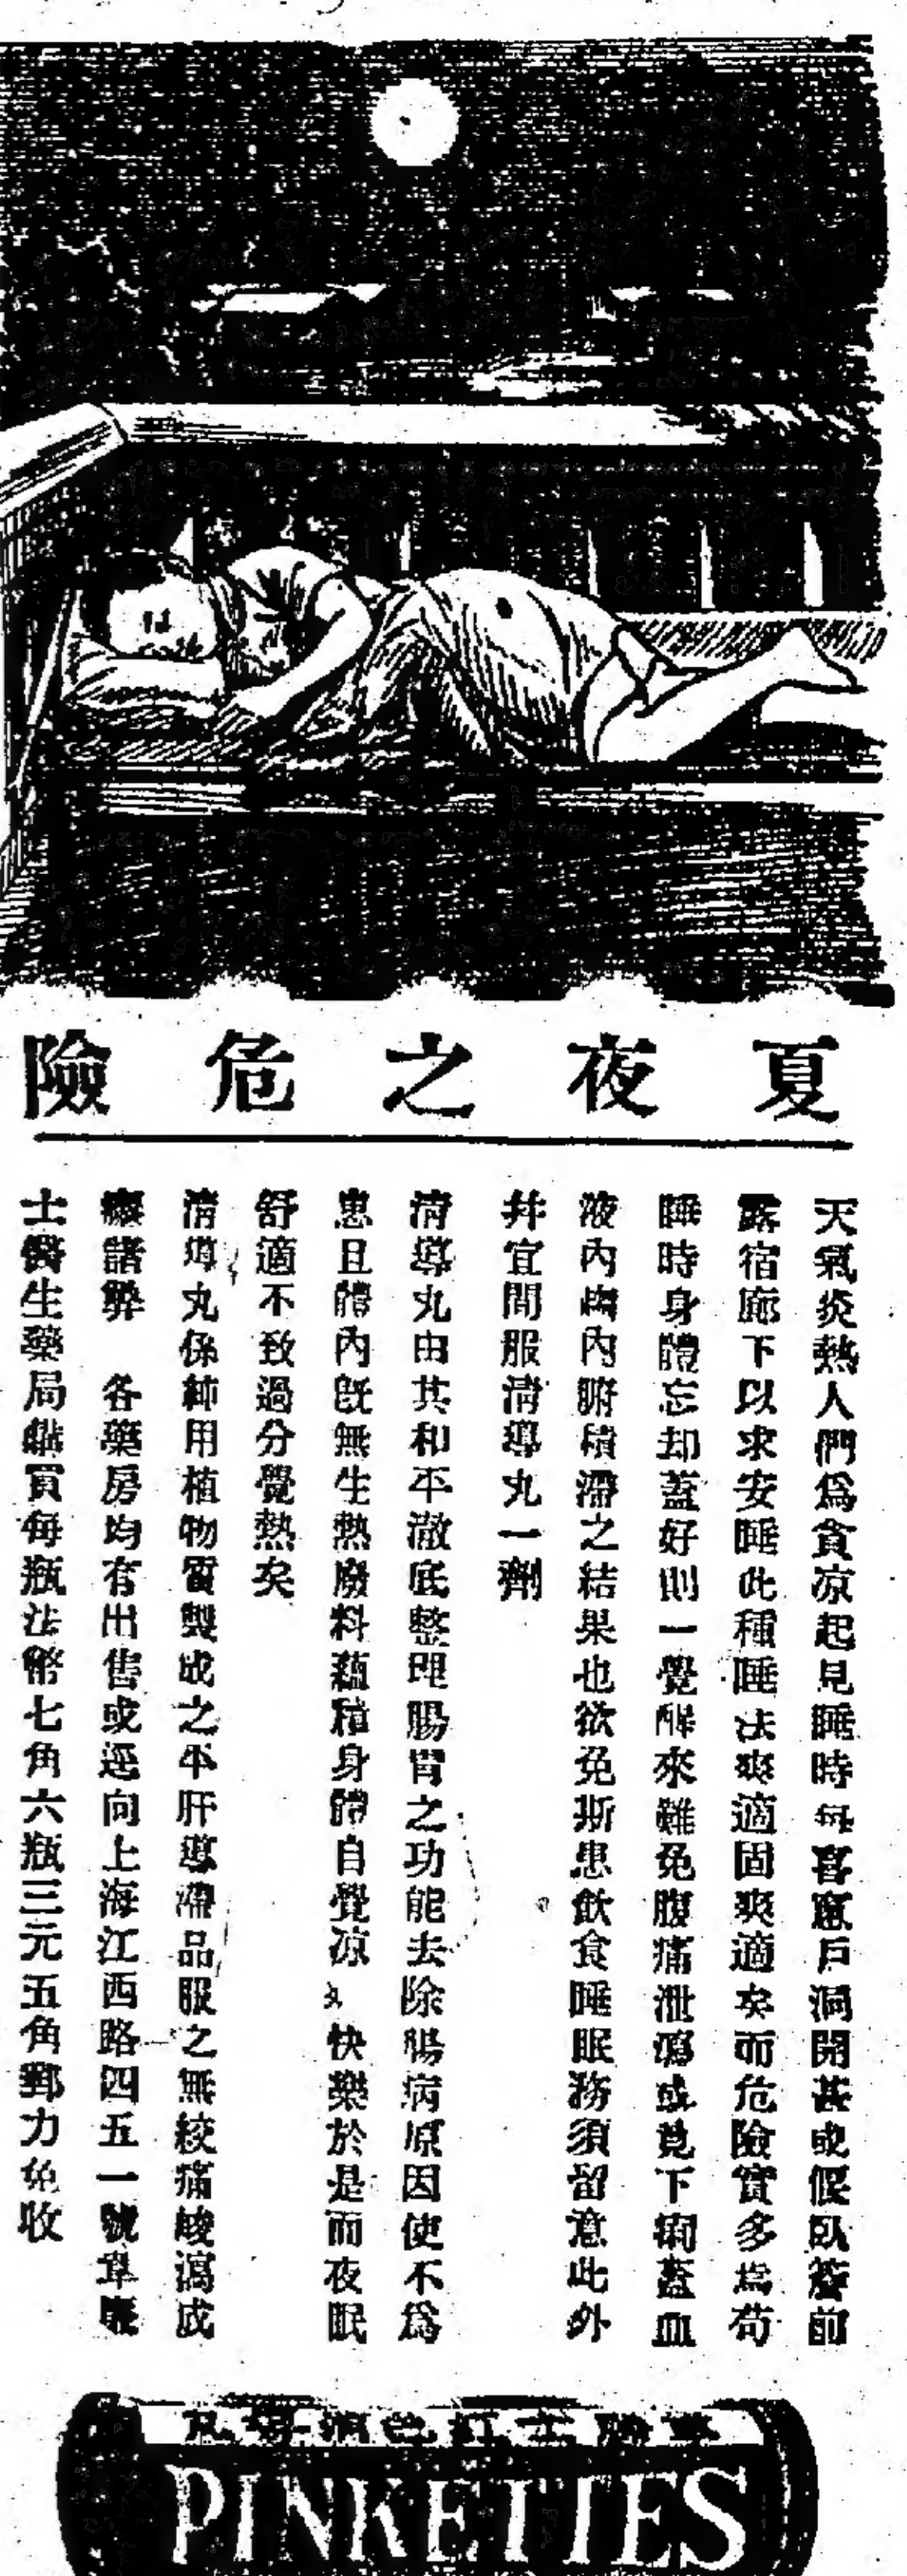 夏夜之危險
天氣炎熱人們爲貪涼起見睡時每喜窻戶洞開甚或偃臥簷前
露宿廊下以求安睡此種睡法爽適固爽適矣而危險實多焉苟
睡時身體忘却蓋好則一覺醒來難免腹痛泄瀉或竟下痢蓋血
液內內腑積滯之結果也欲免斯患飲食睡眠務須留意此外
幷宜間服清導丸一劑
清導丸由其和平澈底整理腸胃之功能去除腸病原因使不爲
患且體內旣無生熱廢料蘊積身體自覺涼快樂於是而夜眠
舒適不致過分覺熱矣
清導丸係純用植物質製成之平肝導滯品服之無絞痛峻瀉成
癮諸弊 各藥房均有出售或逕向上海江西路四五一號韋廉
士醫生藥局購買每瓶法幣七角六瓶三元五角郵力免收
PINKETTES